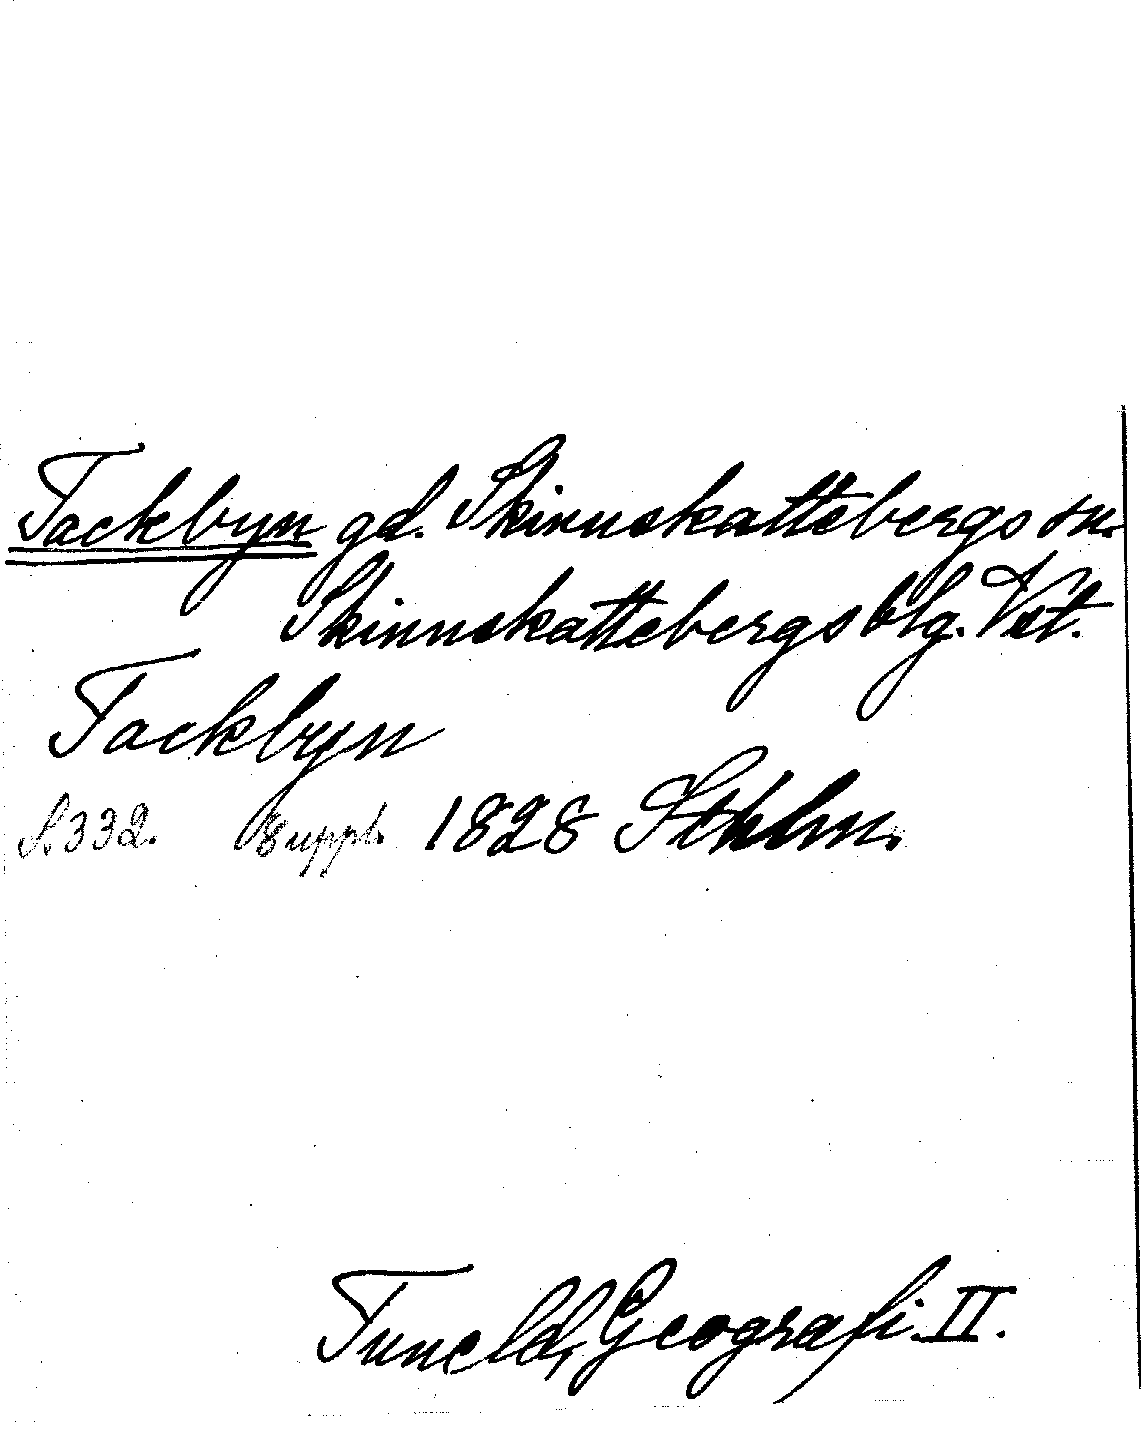 Tackbyn gd. Skinnskattebergs sn.
Skinnskattebergs blg. Vstl.
Tackbyn
S. 332. Suppl. 1828 Sthlm.
Tuneld, Geografi. II.